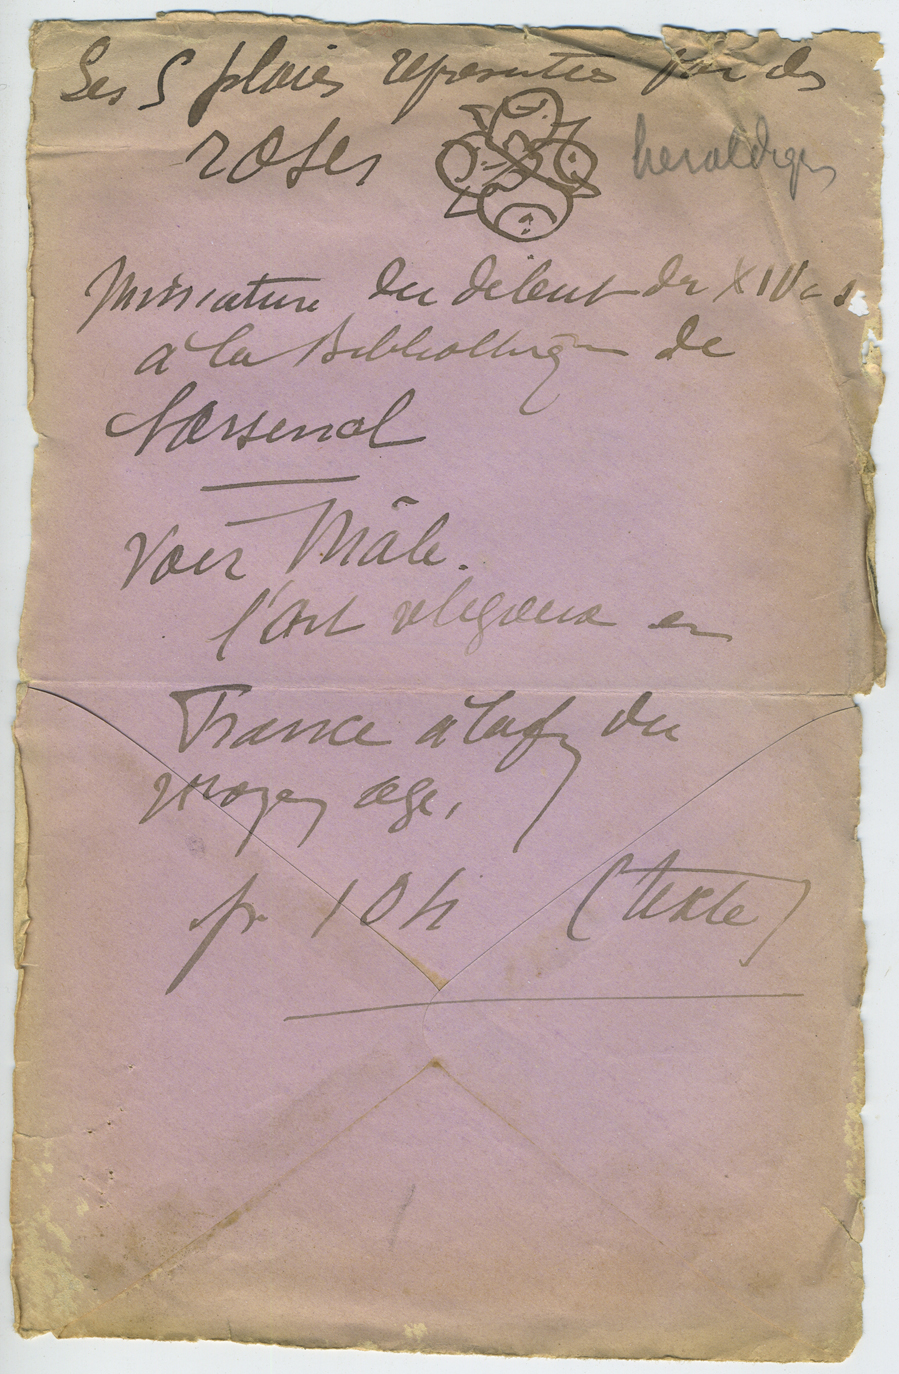 Les 5 plaies representées par des
roses heraldiques
Miniature du début du XIVe s
à la Bibliothèque de
l'Arsenal
Voir Mâle.
l'art religieux en
France à la fin du
moyen age.
p. 104 (texte)